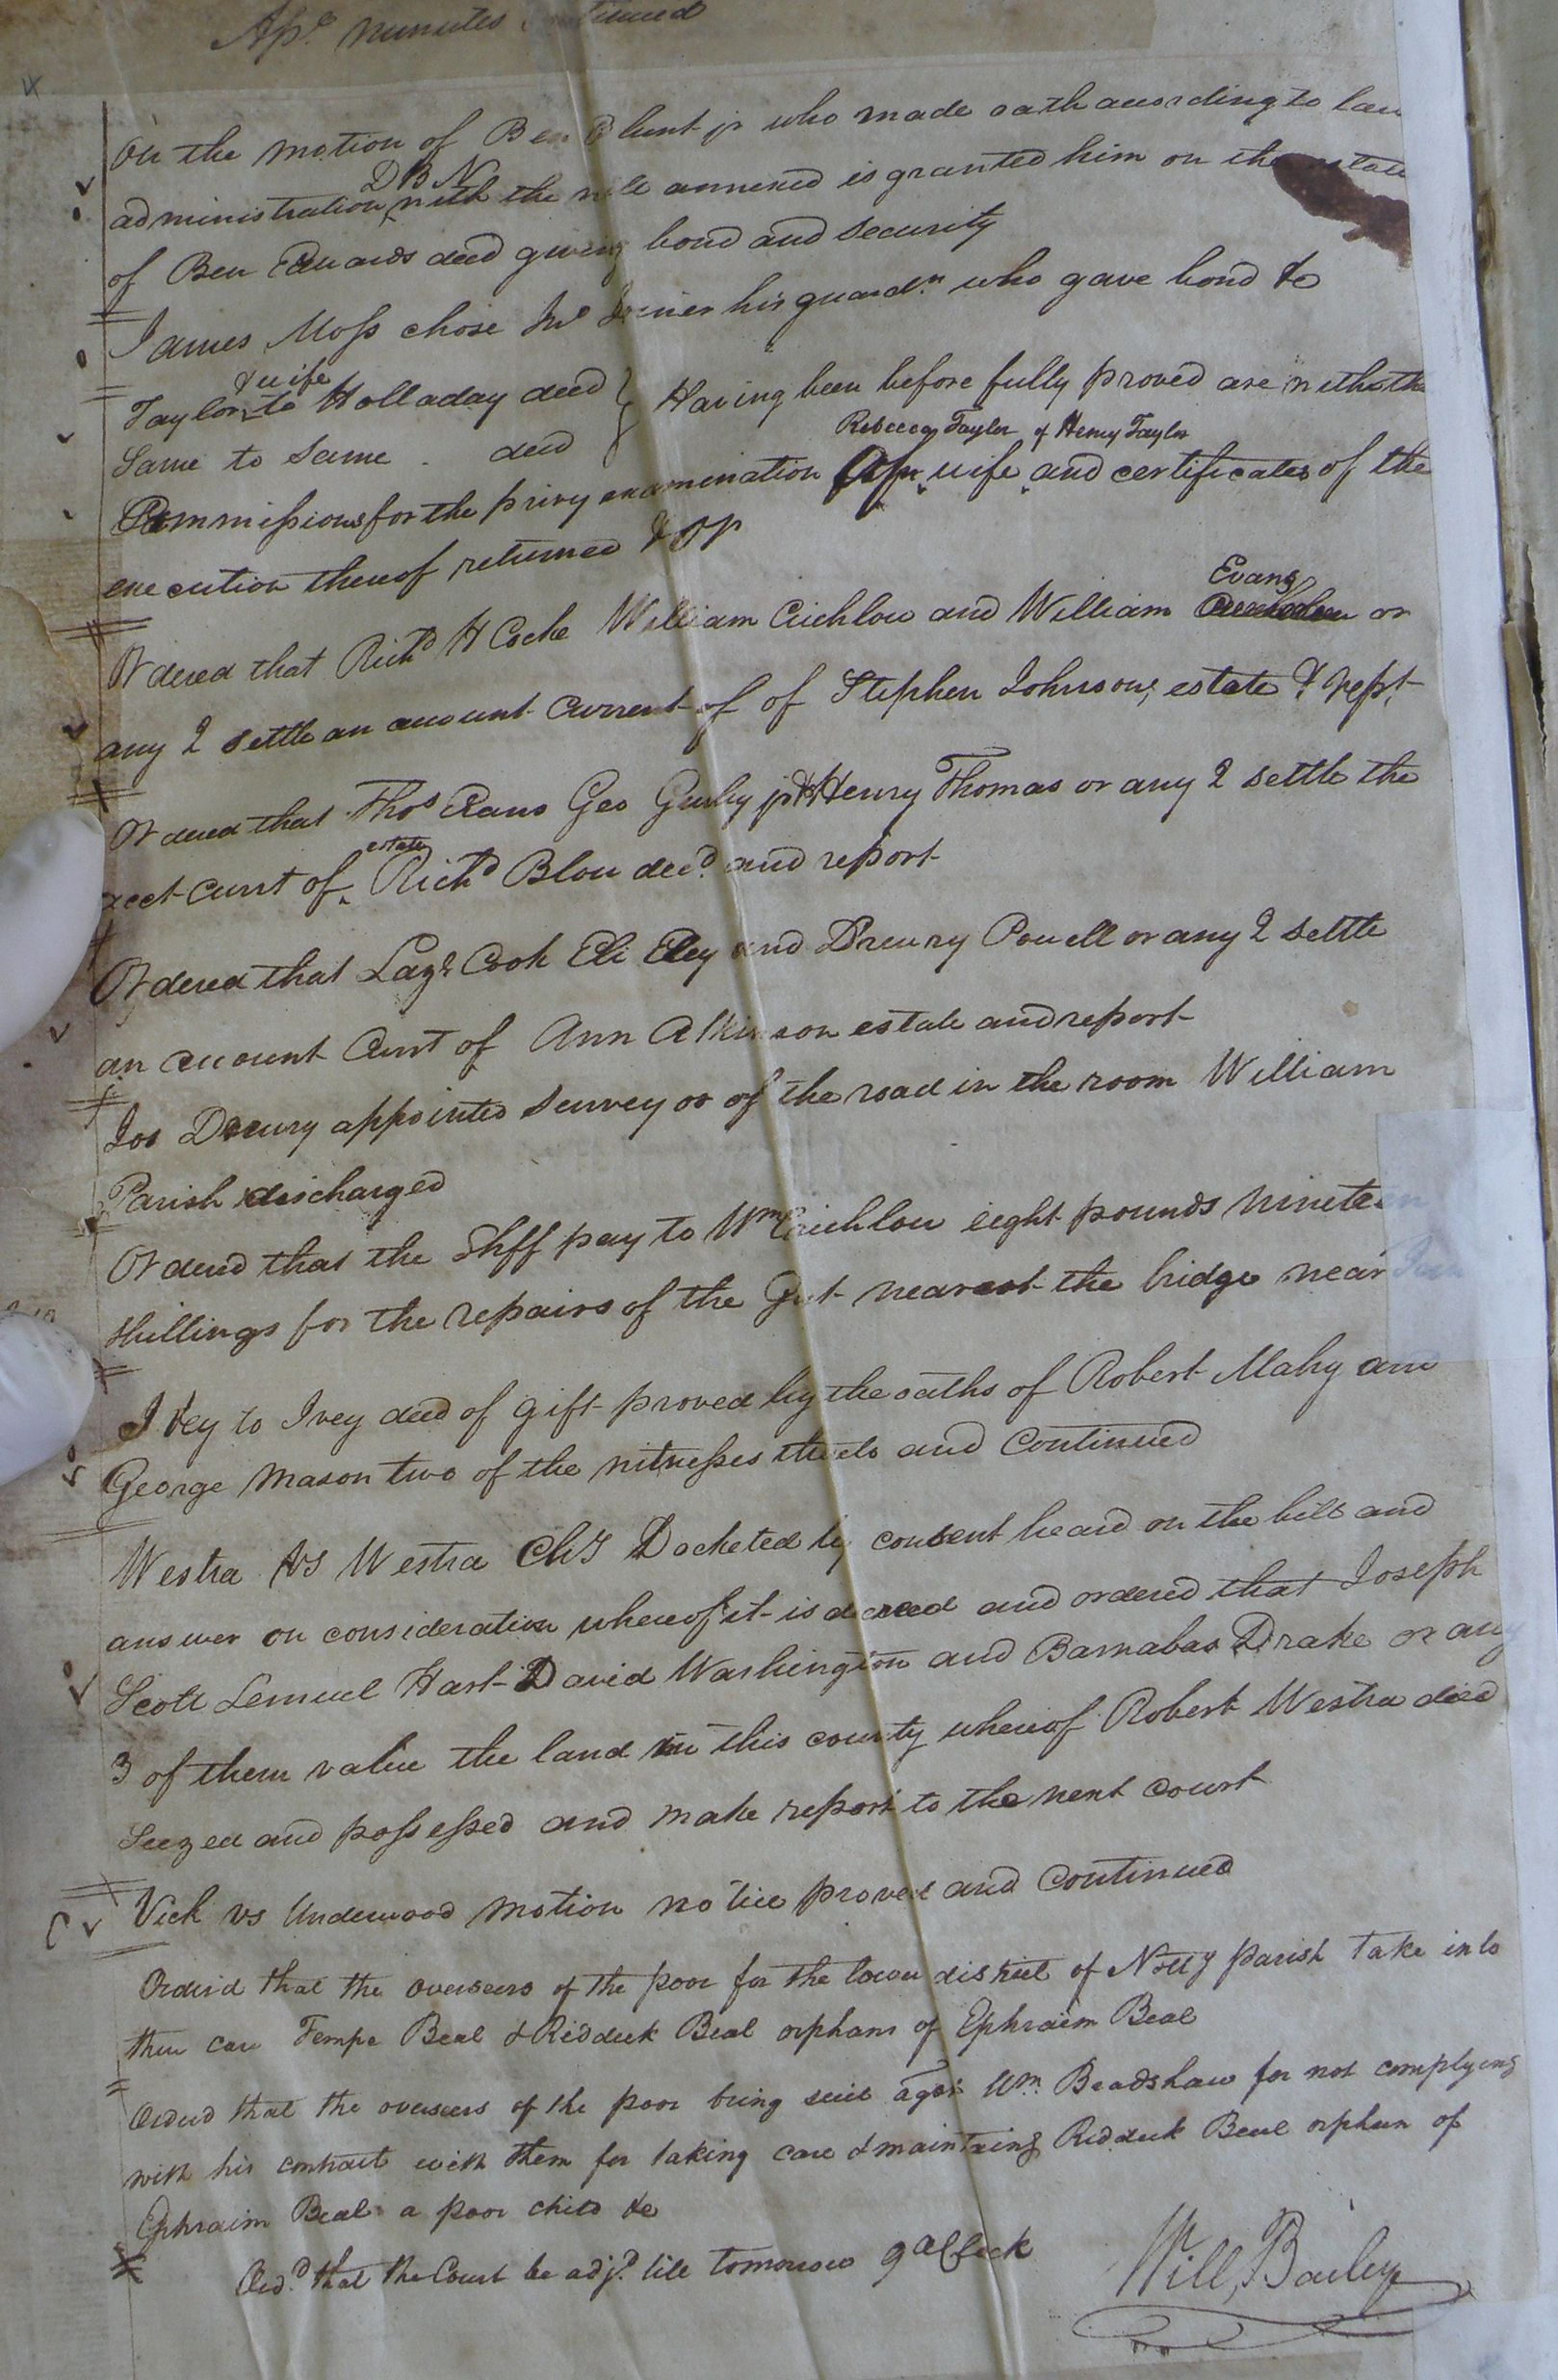 Apl. minutes continued
On the motion of Ben Blunt jr who made oath according to law
administration DBN with the will annexed is granted him on the estate
of Ben Edwards decd giving bond and security
James Moss chose Jno his guardn. who gave bond &c
Taylor & wife to Holladay deed } Having been before fully proved are with the
Same to Same . deed
Commissions for the privy examination of wife Rebecca Taylor of Henry Taylor and certificates of the
execution thereof returned & OR
Ordered that Richd H Cocke William Crichlow and William Evans or
any 2 settle an account Current of of Stephen Johnsons estate & rept.
Ordered that Thos Evans Geo Gurley jr & Henry Thomas or any 2 settle the
acct Curst of estate Richd Blow decd. and report
Ordered that Lazs Cook Eli Eley and Drewry Powell or any 2 settle
an account Curst of Ann Atkinson estate and report
Jos Drewry appointed Surveyor of the road in the room William
Parish discharged
Ordered that the Shff pay to Wm Crichlow eight pounds nineteen
Shillings for the repairs of the Gut nearest the bridge near
Ivey to Ivey deed of gift proved by the oaths of Robert Mahy and
George Mason two of the witnesses thereto and Continued
Westra vs Westra Chy Docketed by consent heard on the bill and
answer on consideration whereof it is decreed and ordered that Joseph
Scott Lemuel Hart David Washington and Barnabas Drake or any
3 of them value the land in this county whereof Robert Westra died
Seezed and possessed and make report to the next Court
Vick vs Underwood motion notice proved and Continued
Orderd that the overseers of the poor for the lower district of Notty parish take into
their care Tempe Beal & Riddick Beal orphans of Ephraim Beal
Orderd that the overseers of the poor bring suit agst Wm. Bradshaw for not complying
with his contract with them for taking care & maintaing Riddick Beal orphan of
Ephraim Beal a poor child &c
Ord.d that the Court be adjd. till tomorrow 9 oClock
Will, Bailey